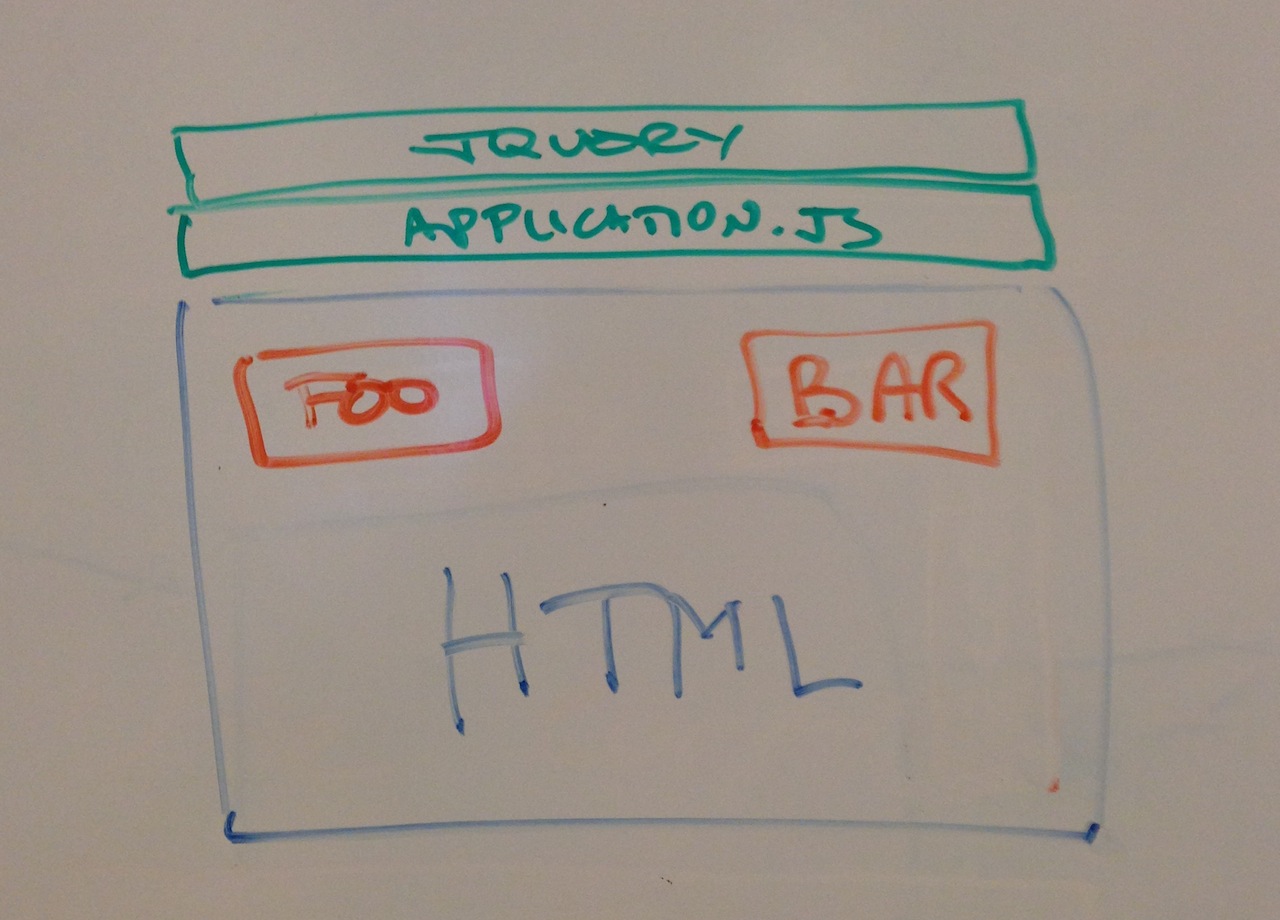 JQUERY
APPLICATION.JS
FOO BAR
HTML